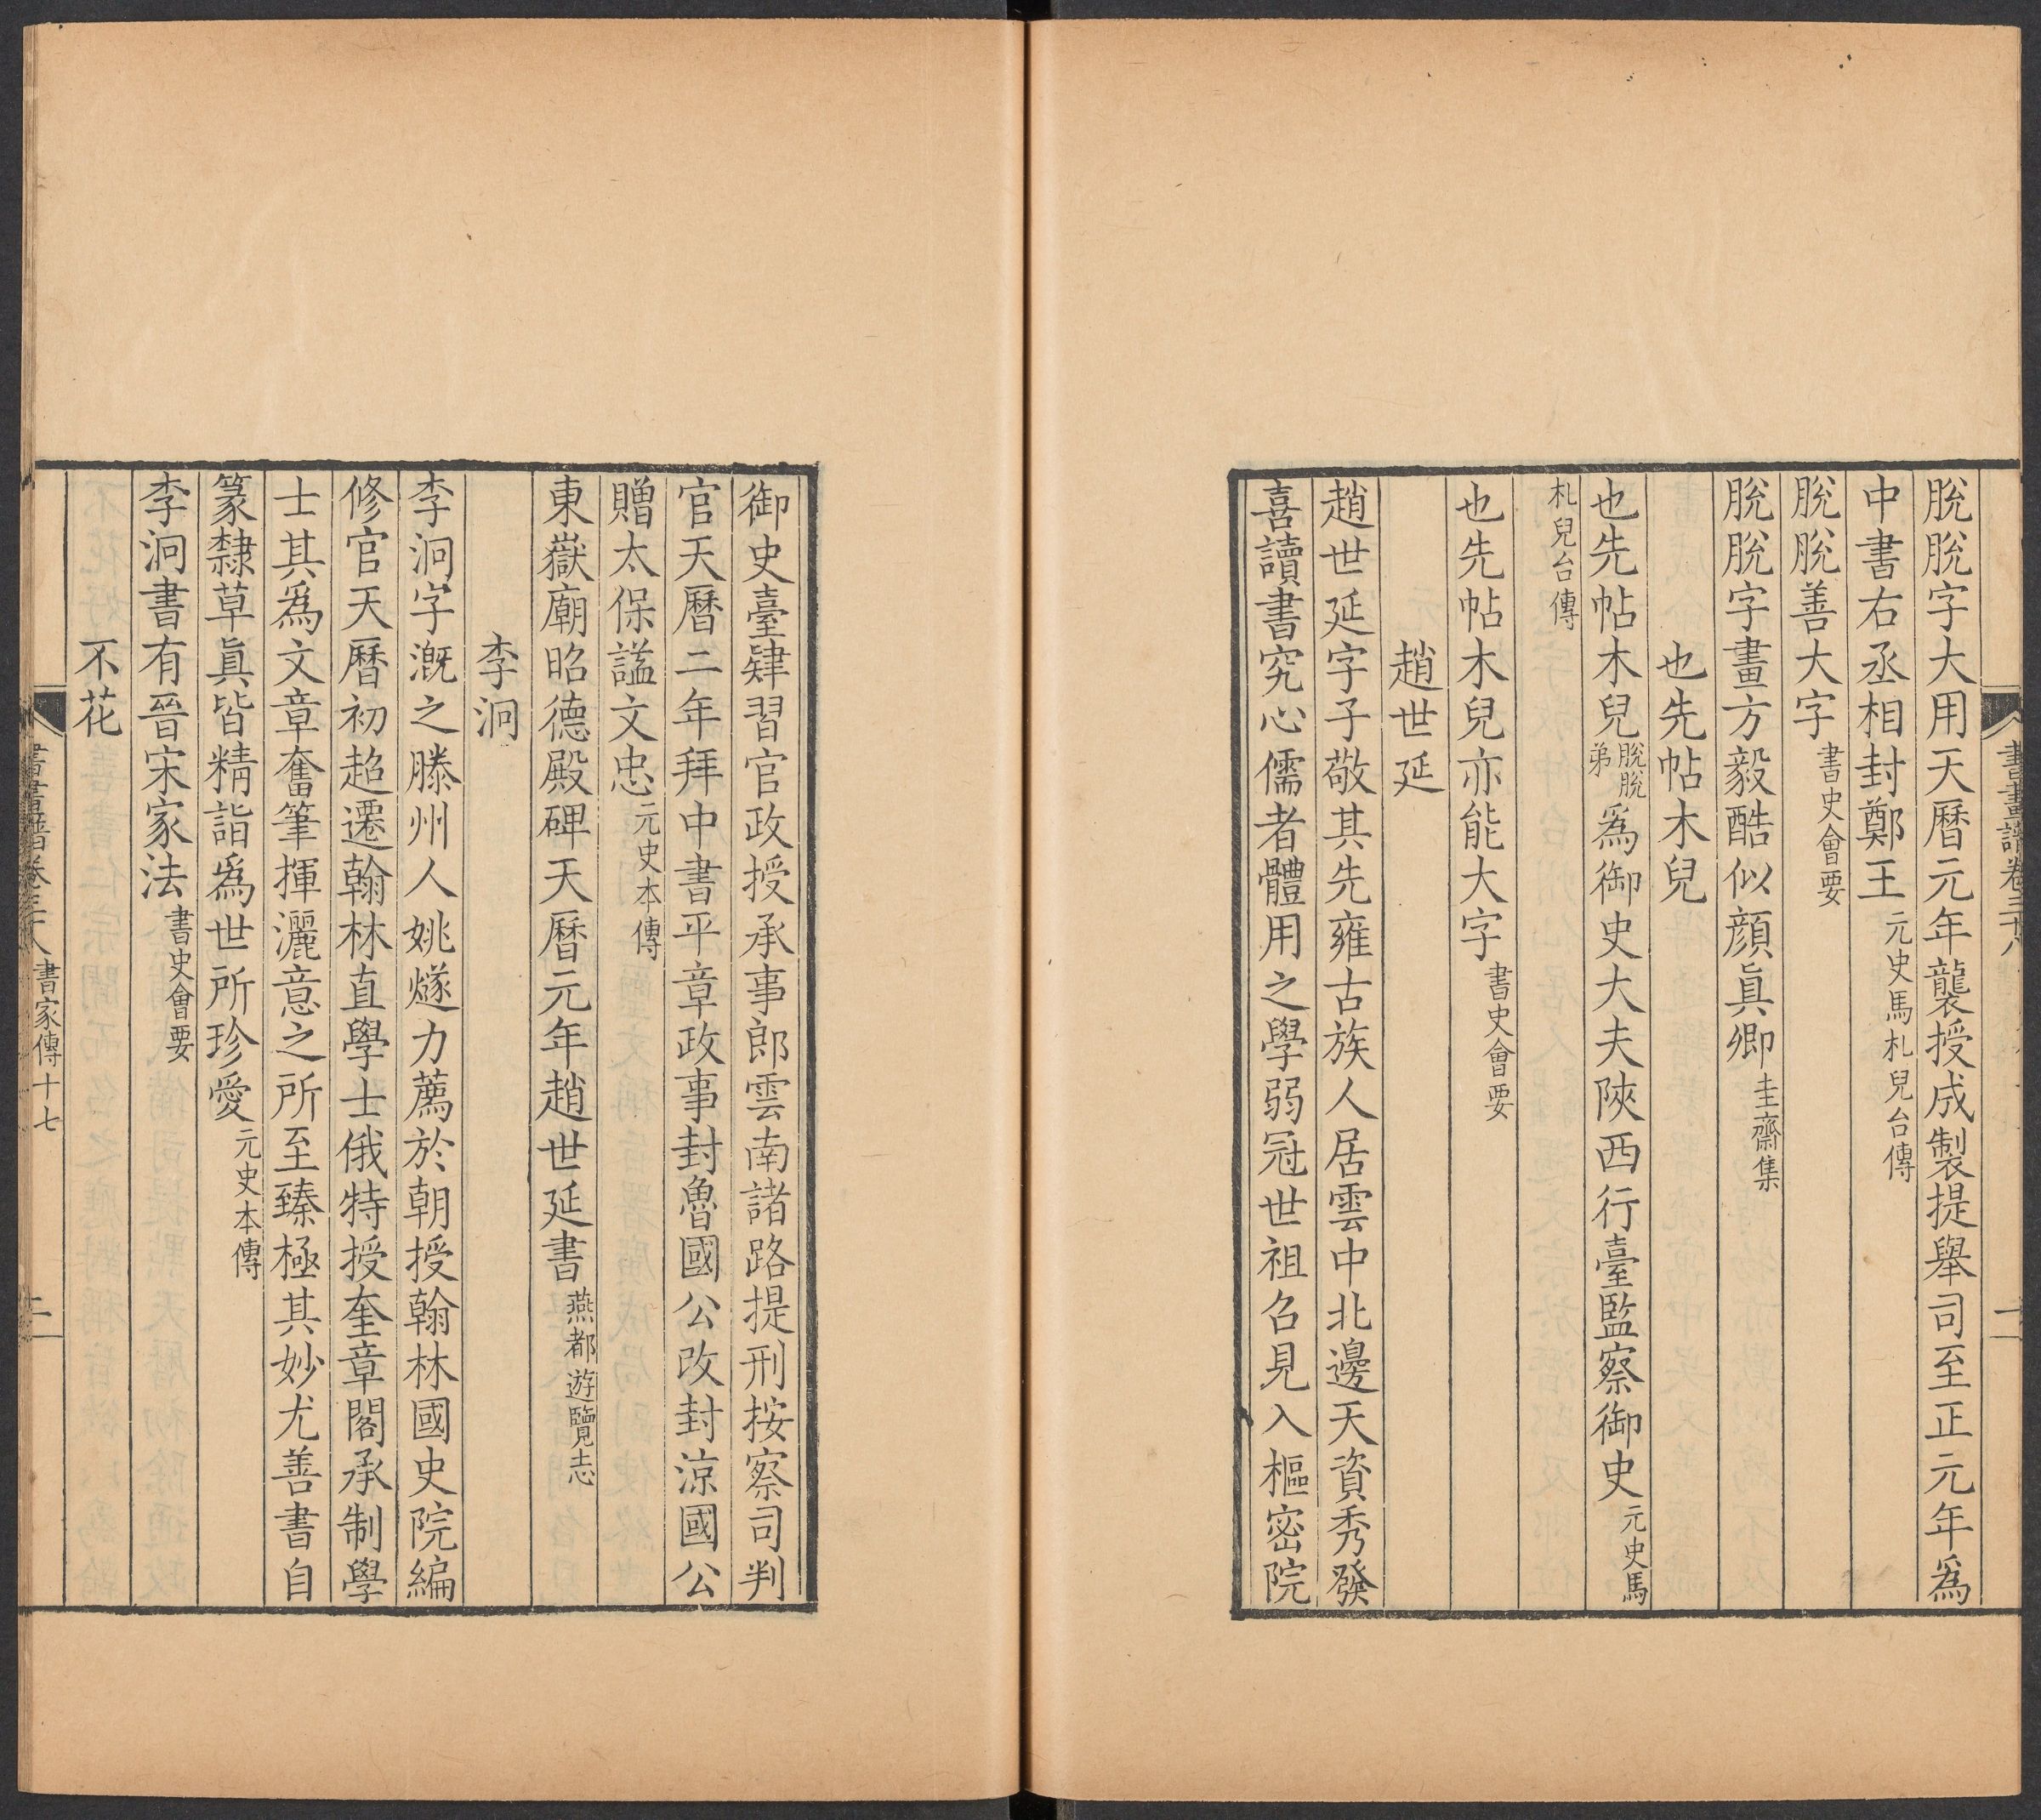 書畫譜卷三十八
一
脫脫字大用天曆元年襲授成製提舉司至正元年爲
中書右丞相封鄭王元史馬札兒台傳
脫脫善大字書史會要
脫脫字畫方毅酷似顔眞卿圭齋集
也先帖木兒
也先帖木兒脫脫弟爲御史大夫陝西行臺監察御史元史馬
札兒台傳
也先帖木兒亦能大字書史會要
趙世延
趙世延字子敬其先雍古族人居雲中北邊天資秀發
喜讀書究心儒者體用之學弱冠世祖召見入樞密院
御史臺肄習官政授承事郎雲南諸路提刑按察司判
官天曆二年拜中書平章政事封魯國公改封涼國公
贈太保諡文忠元史本傳
東嶽廟昭德殿碑天曆元年趙世延書燕都遊覽志
李泂
李泂字漑之滕州人姚燧力薦於朝授翰林國史院編
修官天曆初超遷翰林直學士俄特授奎章閣承制學
士其爲文章奮筆揮灑意之所至臻極其妙尤善書自
篆隸草眞皆精詣爲世所珍愛元史本傳
李泂書有晉宋家法書史會要
不花
書畫譜卷三十八 書家傳十七
二